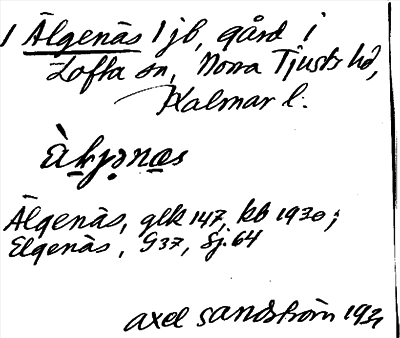 1 Älgenäs 1 jb, gård i
Lofta sn, Norra Tjusts hd,
Kalmar l.
Älgenäs, glk 147, kb 1930;
Elgenäs, G37, Sj. 64
Axel Sandström